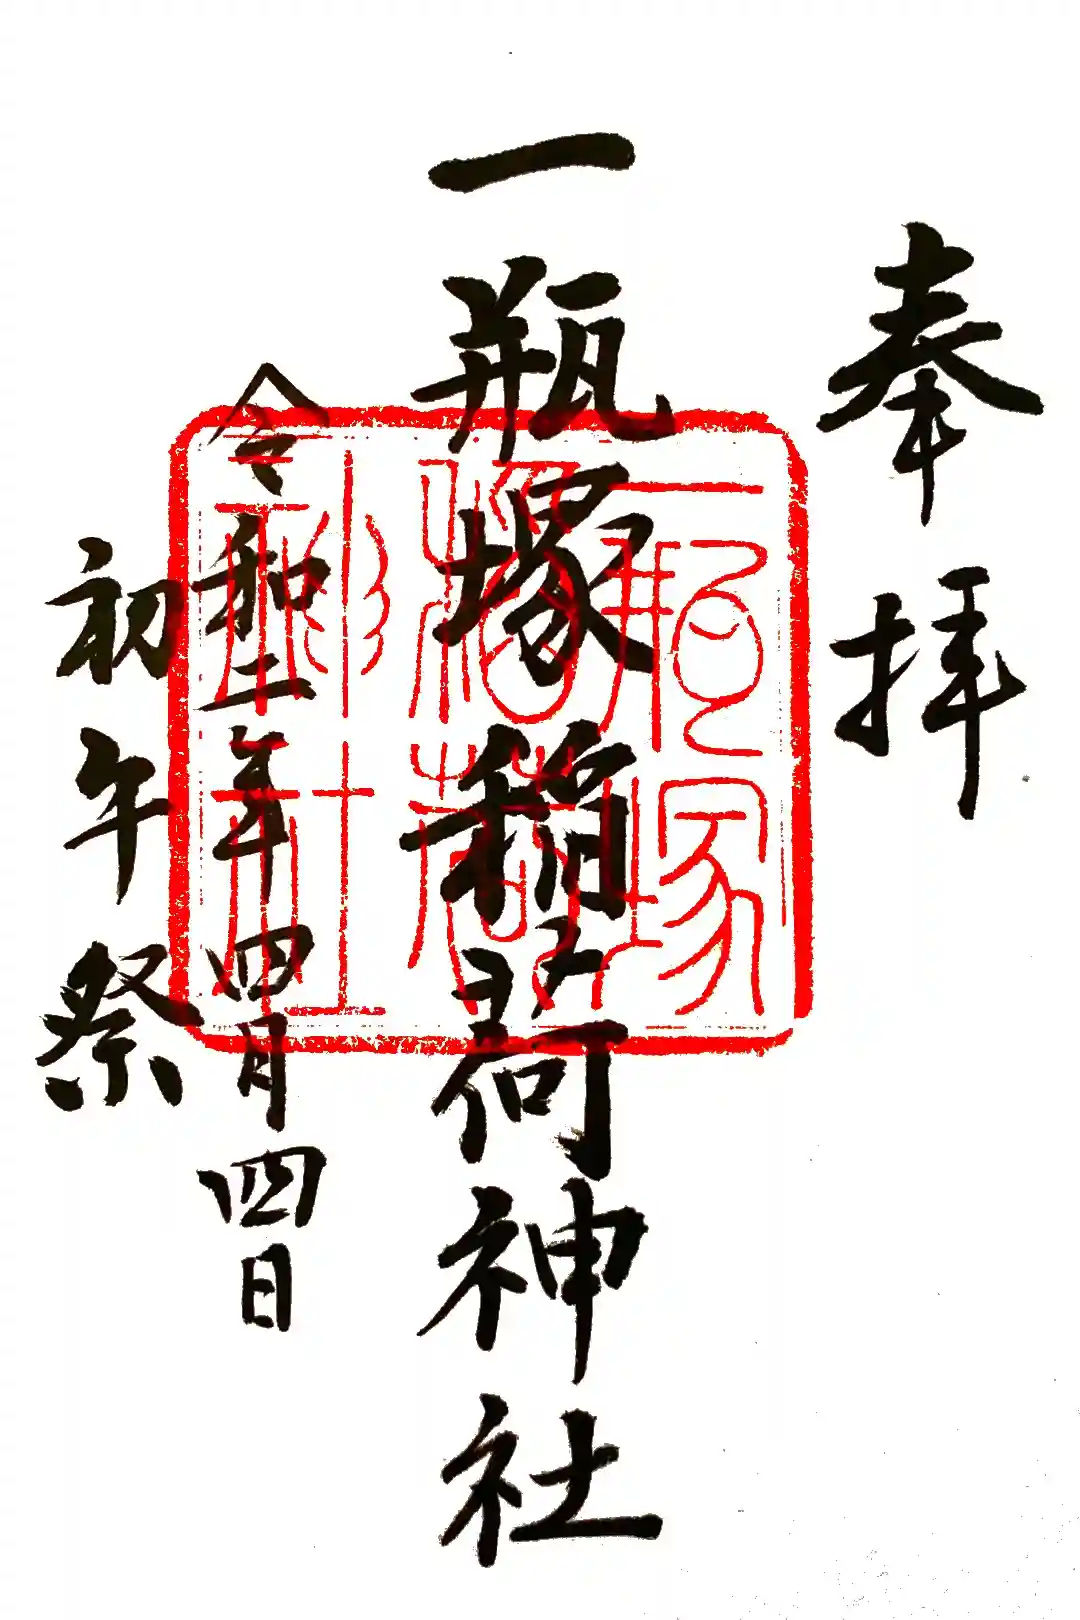 奉拝
一瓶塚稲荷神社
令和二年四月四日
初午祭
一瓶塚
稲荷
郷社